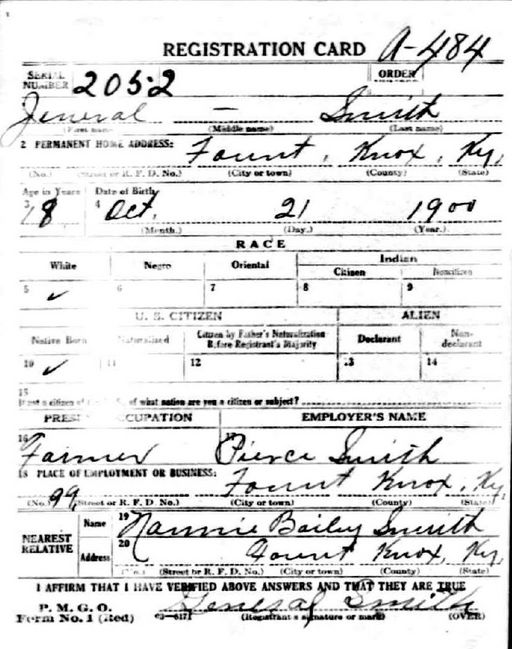 REGISTRATION CARD A-484
SERIAL NUMBER 2052 ORDER
Jeneral — Smith
(First name) (Middle name) (Last name)
2 PERMANENT HOME ADDRESS: Fount, Knox, Ky,
(No.) (Street or R. F. D. No.) (City or town) (County) (State)
Age in Years Date of Birth
3 18 4 Oct. 21 1900
(Month.) (Day.) (Year.)
RACE
White Negro Oriental Indian
Citizen Noncitizen
5 ✓ 6 7 8 9
U. S. CITIZEN ALIEN
Native Born Naturalized Citizen by Father's Naturalization Before Registrant's Majority Declarant Non-declarant
10 ✓ 11 12 13 14
15
If not a citizen of the U. S., of what nation are you a citizen or subject?
PRESENT OCCUPATION EMPLOYER'S NAME
16 Farmer 17 Pierce Smith
18 PLACE OF EMPLOYMENT OR BUSINESS: Fount Knox, Ky
(No.) 99 (Street or R. F. D No.) (City or town) (County) (State)
NEAREST RELATIVE Name 19 Nannie Bailey Smith
Address 20 Fount Knox, Ky,
(No.) (Street or R. F. D. No.) (City or town) (County) (State)
I AFFIRM THAT I HAVE VERIFIED ABOVE ANSWERS AND THAT THEY ARE TRUE
P. M. G. O.
Form No. 1 (Red) 03—6171 General Smith
(Registrant's signature or mark) (OVER)